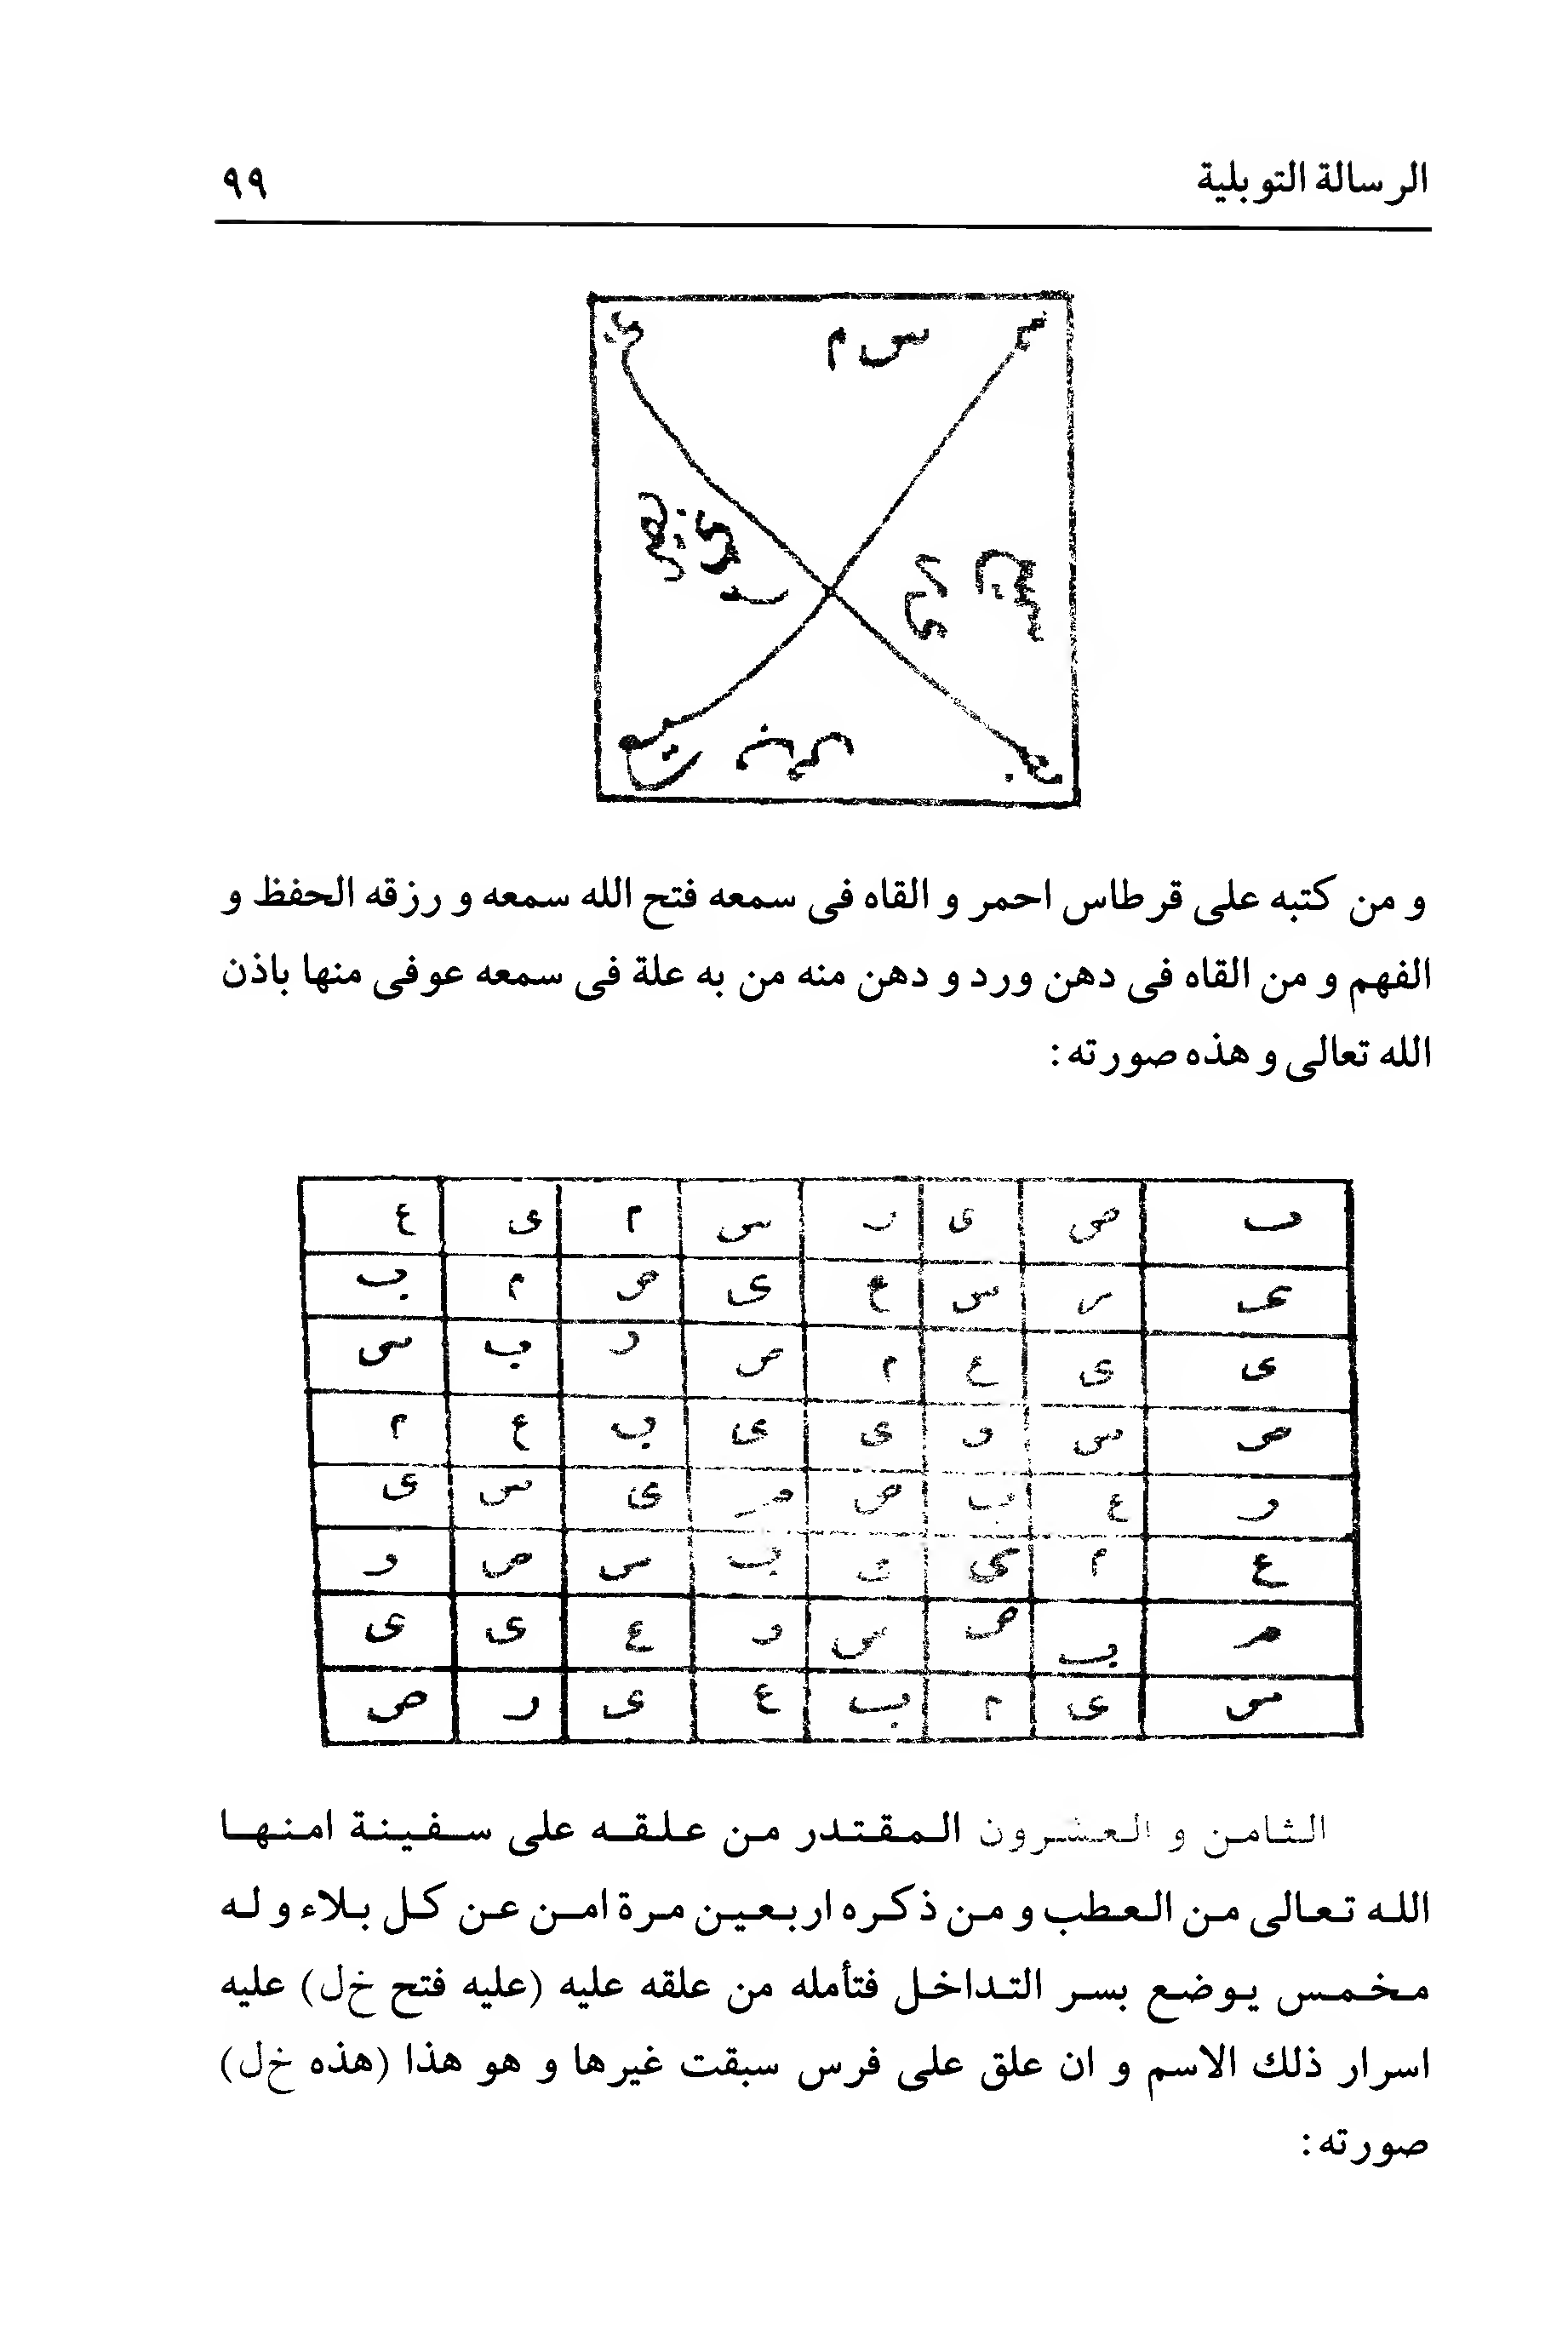 الرسالة التوبلية ٩٩
س م
و من كتبه على قرطاس احمر و القاه فى سمعه فتح الله سمعه و رزقه الحفظ و
الفهم و من القاه فى دهن ورد و دهن منه من به علة فى سمعه عوفى منها باذن
الله تعالى و هذه صورته :
ب ص ى ر س م ى ع
ى ر س ع ى ص م ب
ى ى ع م ص ر ب س
ص س ر ى ى ب ع م
ر ع ب ص م ى س ى
ع م ى ى ب س ص ر
م ب ص س ر ع ى ى
س ى م ب ع ى ر ص
الثامن و العشرون المقتدر من علقه على سفينة امنها
الله تعالى من العطب و من ذكره اربعين مرة امن عن كل بلاء و له
مخمس يوضع بسر التداخل فتأمله من علقه عليه (عليه فتح خ‌ل) عليه
اسرار ذلك الاسم و ان علق على فرس سبقت غيرها و هو هذا (هذه خ‌ل)
صورته :